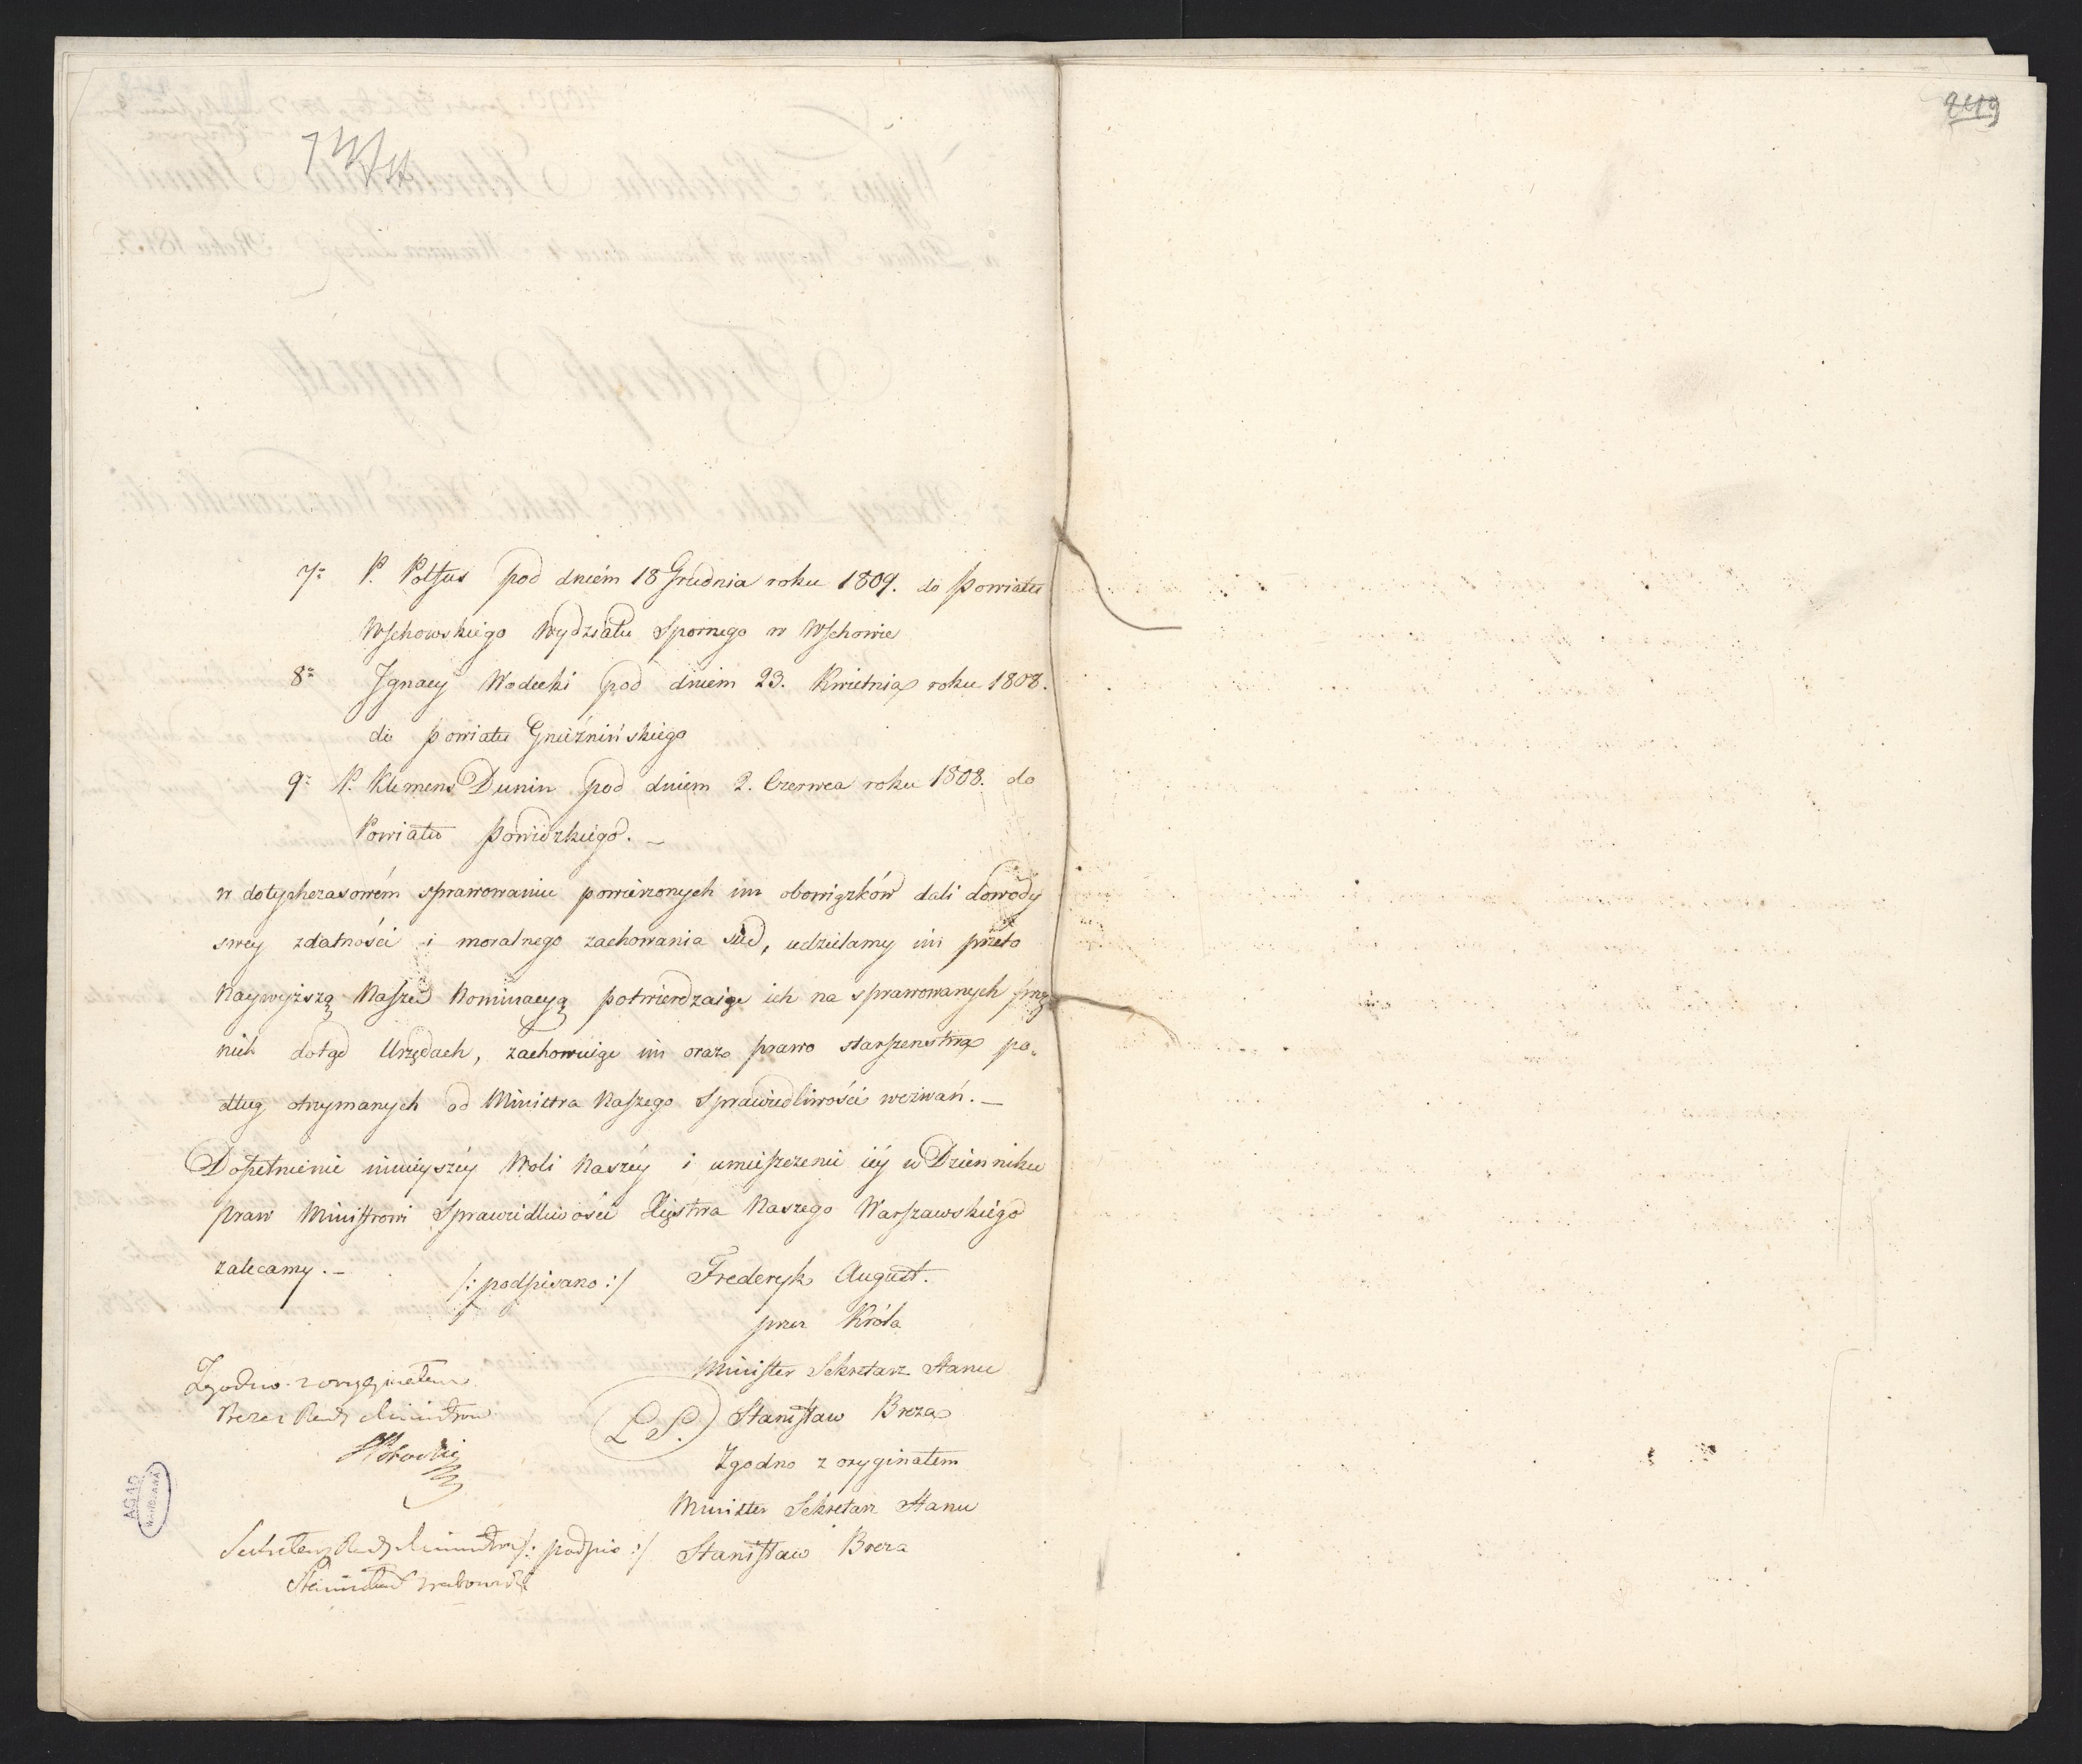 249
7º P. Poltus pod dniém 18 Grudnia roku 1809. do Powiatu
Wschowskiego Wydziału Spornego w Wschowie
8º Ignacy Wodecki pod dniem 23. Kwietnia roku 1808.
do powiatu Gnieźnińskiego
9º P. Klemens Dunin pod dniem 2. Czerwca roku 1808. do
Powiatu Powidzkiego. –
w dotychczasowém sprawowaniu powierzonych im obowiązków dali dowody
swey zdatności i moralnego zachowania się, udzielamy im przeto
Naywyższą Naszą Nominacyą potwierdzaiąc ich na sprawowanych przez
nich dotąd Urzędach, zachowuiąc im oraz prawo starszenstwa po„
dług otrzymanych od Ministra Naszego Sprawiedliwości wezwań. –
Dopełnienie ninieyszéy Woli Naszéy i umieszczenie iéy w Dzienniku
praw Ministrowi Sprawiedliwości Xięstwa Naszego Warszawskiego
zalecamy. – /: podpisano :/ Frederyk August.
przez Króla
Minister Sekretarz Stanu
(L. S.) Stanisław Breza
Zgodno z oryginałem
Minister Sekretarz Stanu
/: podpis :/ Stanisław Breza
Zgodno z oryginałem
Prezes Rady Ministrów
Sekretarz Rady Ministrów
Stanisław Grabowski
AGAD
WARSZAWA